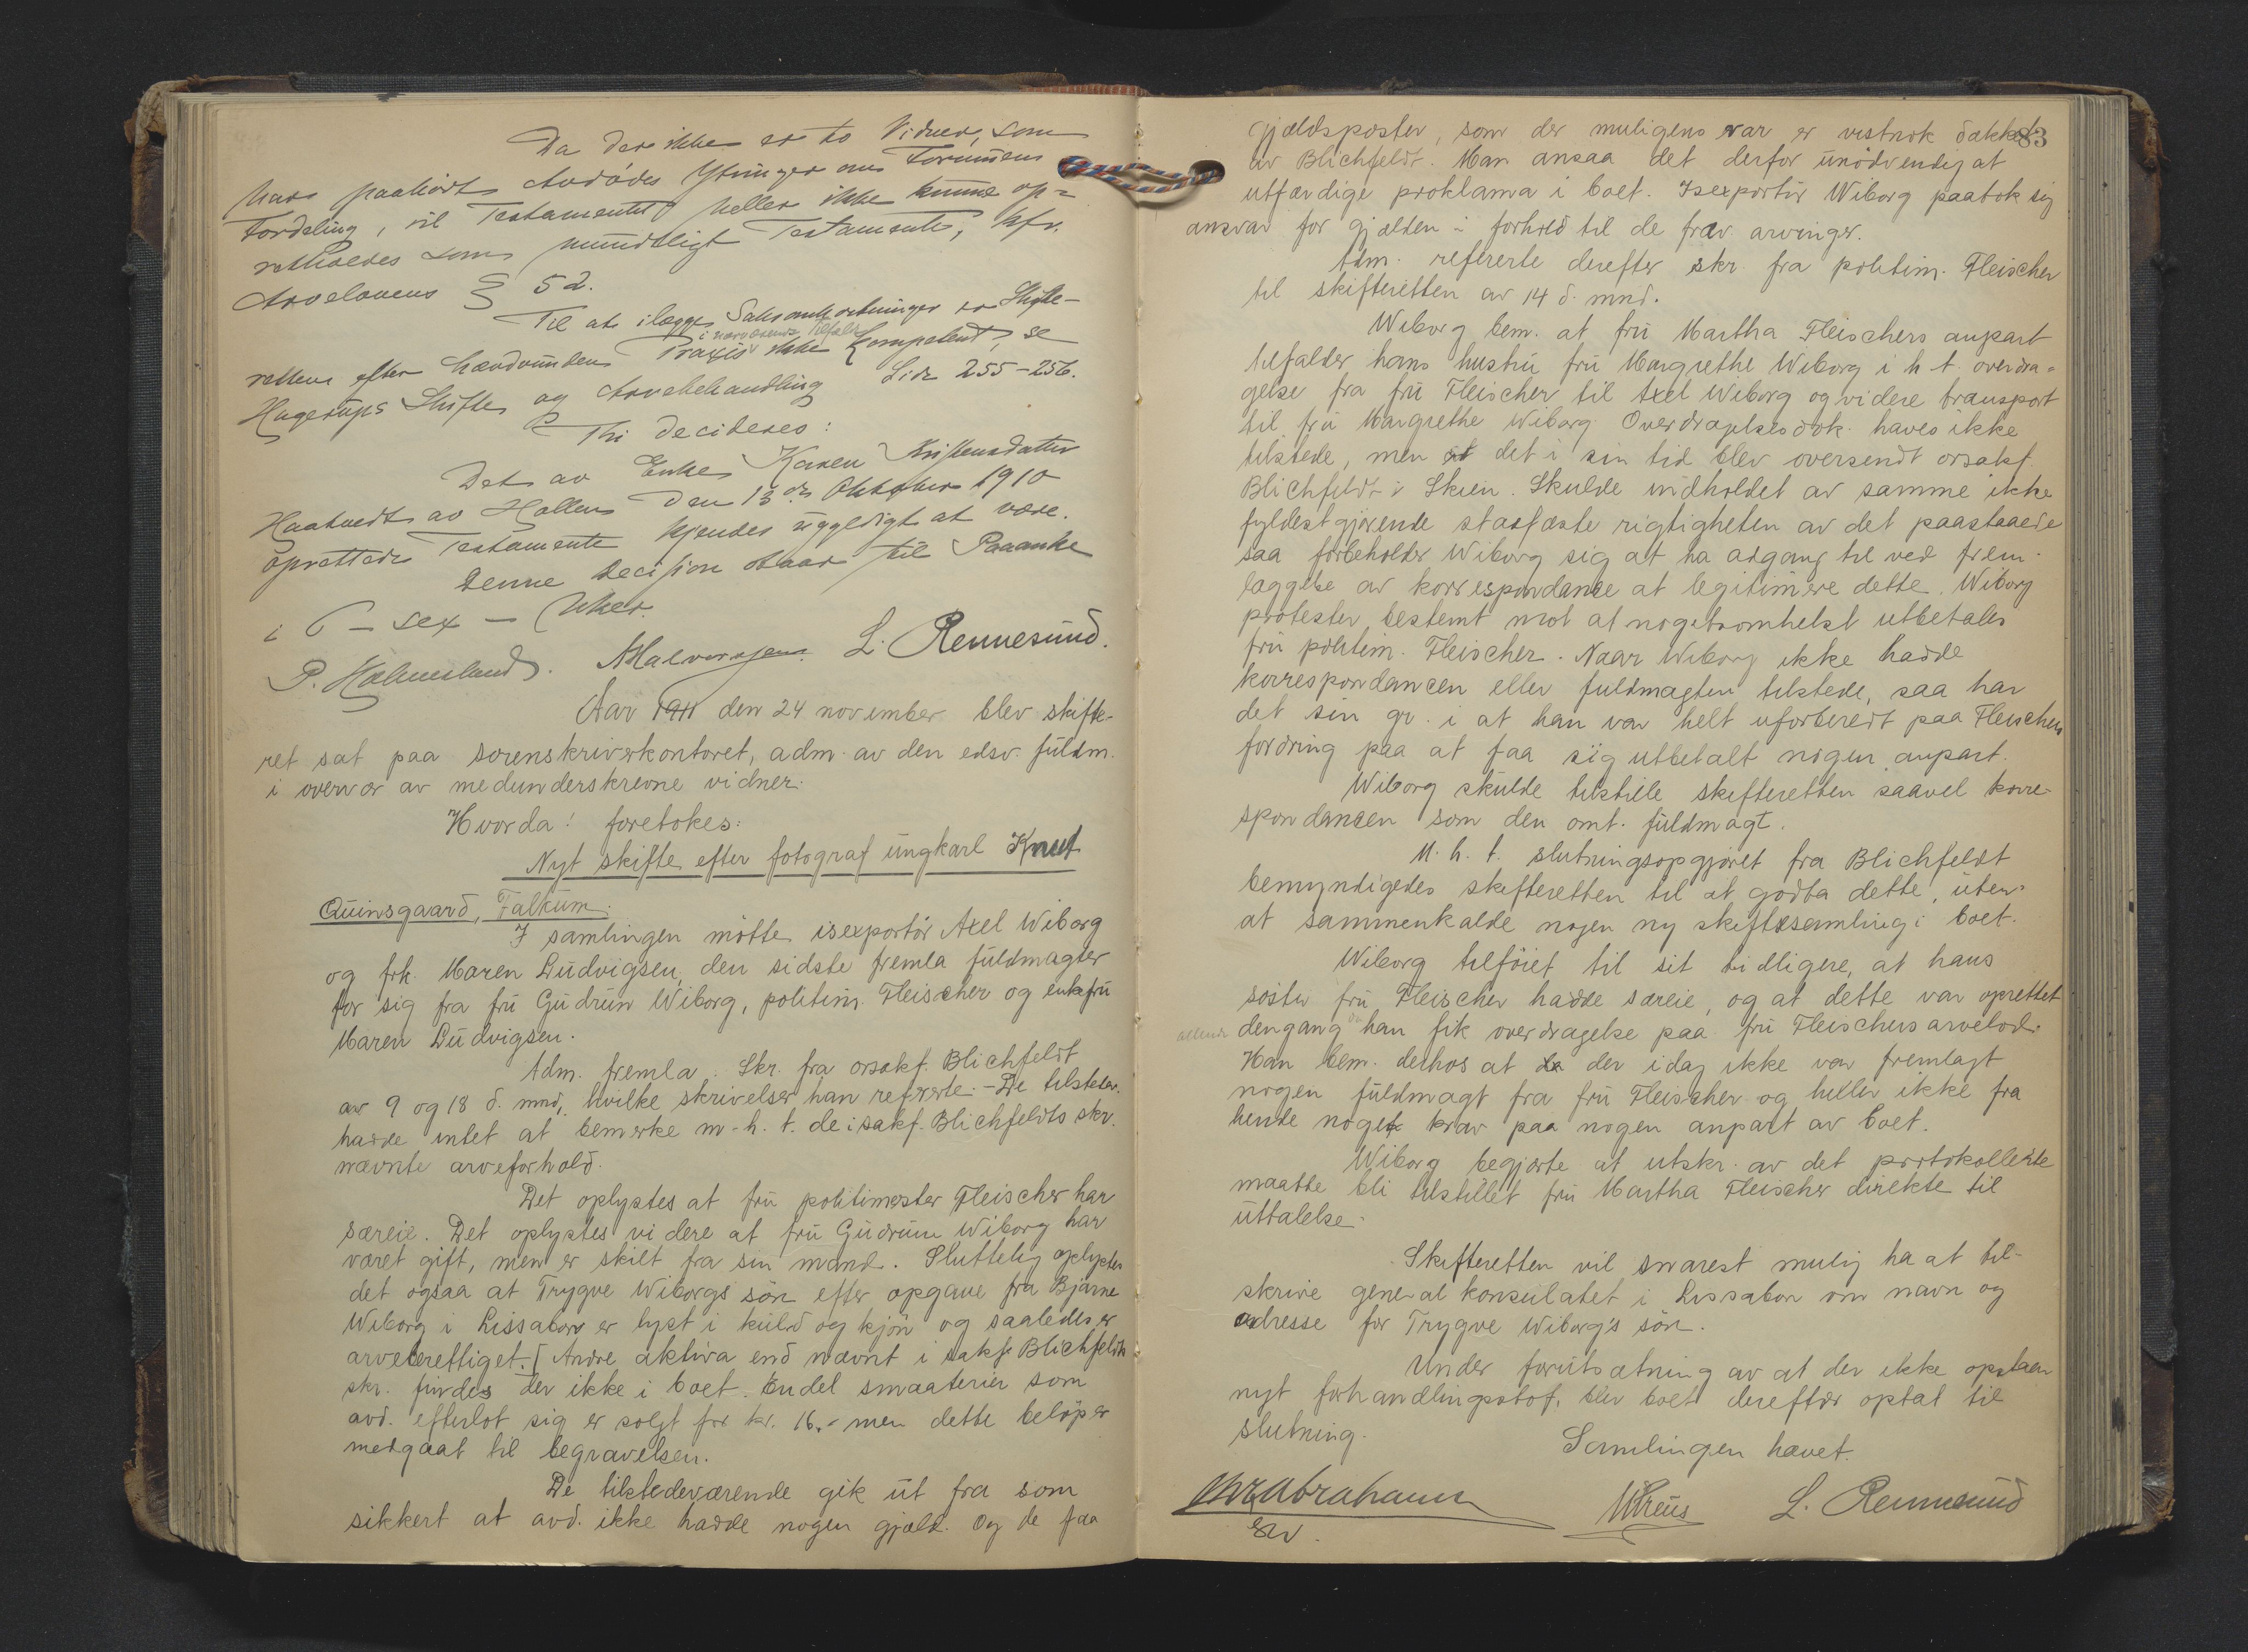 Da der ikke er to Vidner, som
have paahørt Avdødes Ytringer om Formuens
Fordeling, vil Testamentet heller ikke kunne op-
retholdes som mundtligt Testamente, kfr.
Arvelovens § 52.
Til at ilægge Saksomkostninger er Skifte-
i nærværende Tilfælde
retten efter hævdvunden Praxis ikke kompetent, se
Hagerups Skifte og Arvebehandling Side 255-256.
Thi decideres:
Det av Enke Karen Kristensdatter
Haatvedt av Hollen den 13de Oktober 1910
oprettede Testamente kjendes ugyldigt at være.
Denne Decision staar til Paaanke
i 6 - sex - Uker.
P. Holmesland. Halvorsen. L. Rennesund.
Aar 1911 den 24 november blev skifte-
ret sat paa sorenskriverkontoret, adm. av den edsv. fuldm.
i overvær av medunderskrevne vidner.
Hvorda! foretokes:
Nyt skifte efter fotograf ungkarl Knut
Quinsgaard, Falkum.
I samlingen møtte isexportør Axel Wiborg
og frk. Maren Ludvigsen, den sidste fremla fuldmagter
for sig fra fru Gudrun Wiborg, politim. Fleischer og enkefru
Maren Ludvigsen.
Adm. fremla. Skr. fra orsakf. Blichfeldt
av 9 og 18 d. mnd, hvilke skrivelser han refererte. - De tilstedev.
hadde intet at bemerke m. h. t. de i sakf. Blichfeldts skr.
nævnte arveforhold.
Det oplystes at fru politimester Fleischer har
særeie. Det oplystes videre at fru Gudrun Wiborg har
været gift, men er skilt fra sin mand. Sluttelig oplystes
det ogsaa at Trygve Wiborgs søn efter opgave fra Bjarne
Wiborg i Lissabon er lyst i kuld og kjøn og saaledes er
arveberettiget. [Andre aktiva end nævnt i sakf. Blichfeldts
skr. findes der ikke i boet. Endel smaaterier som
avd. efterlot sig er solgt for kr. 16.- men dette beløp er
medgaat til begravelsen.
De tilstedeværende gik ut fra som
sikkert at avd. ikke hadde nogen gjæld. Og de faa
83
gjældsposter, som der muligens var er vistnok dækket
av Blichfeldt. Man ansaa det derfor unødvendig at
utfærdige proklama i boet. Isexportør Wiborg paatok sig
ansvar for gjælden i forhold til de frav. arvinger.
Adm. refererte derefter skr. fra politim. Fleischer
til skifteretten av 14 d. mnd.
Wiborg bem. at fru Martha Fleischers anpart
tilfalder hans hustru fru Margrethe Wiborg i h. t. overdra-
gelse fra fru Fleischer til Axel Wiborg og videre transport
til fru Margrethe Wiborg. Overdragelsesdok. haves ikke
tilstede, men det i sin tid blev oversendt orsakf.
Blichfeldt i Skien. Skulde indholdet av samme ikke
fyldestgjørende stadfæste rigtigheten av det paastaaede
saa forbeholder Wiborg sig at ha adgang til ved frem-
læggelse av korrespondance at legitimere dette. Wiborg
protester bestemt mot at nogetsomhelst utbetales
fru politim. Fleischer. Naar Wiborg ikke hadde
korrespondancen eller fuldmagten tilstede, saa har
det sin gr. i at han var helt uforberedt paa Fleischers
fordring paa at faa sig utbetalt nogen anpart.
Wiborg skulde tilstille skifteretten saavel korre-
spondancen som den omt. fuldmagt.
M. h. t. slutningsopgjøret fra Blichfeldt
bemyndigedes skifteretten til at godta dette, uten
at sammenkalde nogen ny skiftesamling i boet.
Wiborg tilføiet til sit tidligere, at hans
søster fru Fleischer hadde særeie, og at dette var oprettet
allerede dengang da han fik overdragelse paa fru Fleischers arvelod.
Han bem. derhos at der idag ikke var fremlagt
nogen fuldmagt fra fru Fleischer og heller ikke fra
hende noget krav paa nogen anpart av boet.
Wiborg begjærte at utskr. av det protokollerte
maatte bli tilstillet fru Martha Fleischer direkte til
uttalelse.
Skifteretten vil snarest mulig ha at til-
skrive generalkonsulatet i Lissabon om navn og
adresse for Trygve Wiborg's søn.
Under forutsætning av at der ikke opstaar
nyt forhandlingsstof, blev boet derefter optat til
slutning.
Samlingen hævet.
Chr Abrahams L. Rennesund